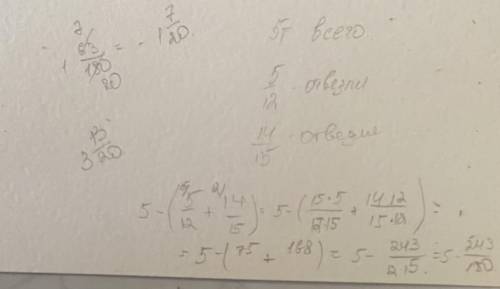 1 63/180 = - 1 7/20.
5т всего.
5/12 - отвезли
3 13/20
14/15 - отвезли
5 - (5/12 + 14/15) = 5 - (15·5/12·15 + 14·12/15·12) =
= 5 - (75 + 168) = 5 - 243/215. = 5 - 243/180